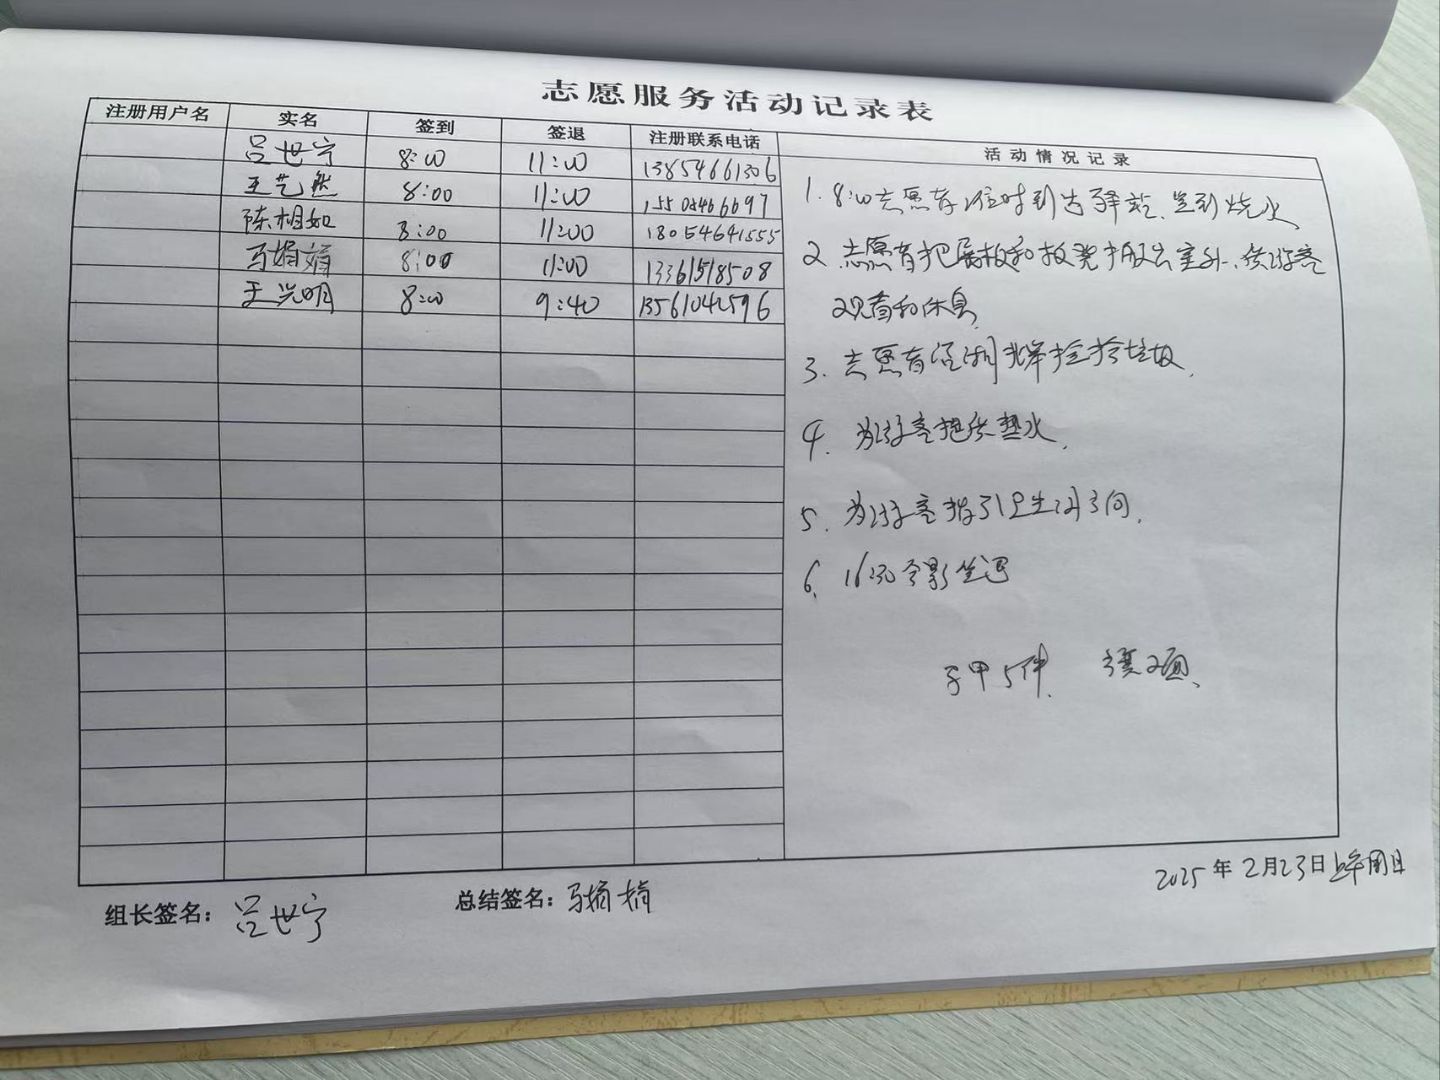 志愿服务活动记录表
注册用户名 实名 签到 签退 注册联系电话 活动情况记录
吕世宁 8:00 11:00 13854661306
王艺然 8:00 11:00
陈相如 8:00 11:00 18054641555
马娟娟 8:00 11:00 13361518508
王兴明 8:00 9:40 13561042596
1. 8:00志愿者准时到古驿站、签到烧水
2 志愿者把展板和板凳搬出室外、供游客
观看和休息
3. 志愿者沿湖岸捡拾垃圾.
4. 为游客提供热水.
5. 为游客指引卫生间方向.
6. 合影签退
马甲5件、 2面、
2025年2月23日上午周日
组长签名: 吕世宁
总结签名: 马娟娟